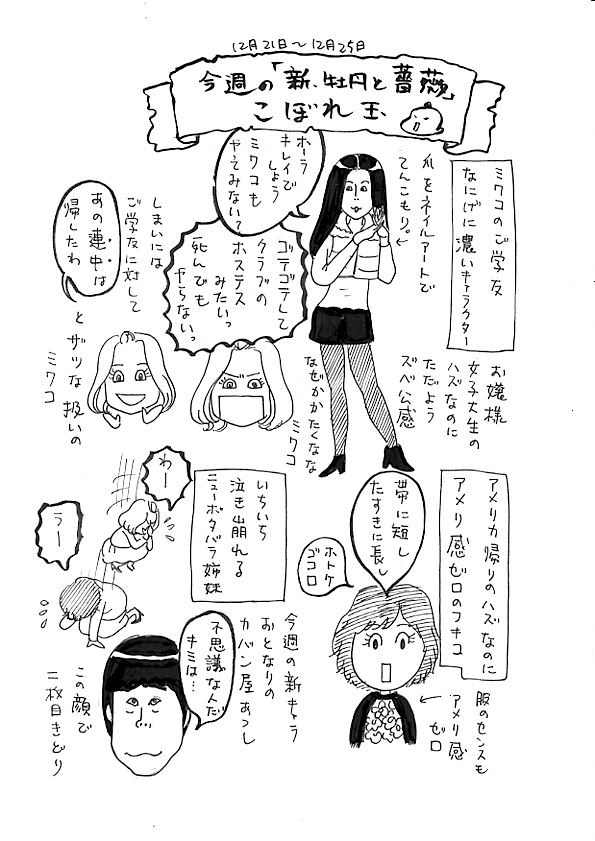 12月21日〜12月25日
今週の「新・牡丹と薔薇」
こぼれ玉
ミワコのご学友
なにげに濃いキャラクター
爪をネイルアートで
てんこもり。
ホーラ
キレイで
しょう
ミワコも
やってみない?
ゴテゴテして
クラブの
ホステス
みたいっ
死んでも
やらないっ
お嬢様
女子大生の
ハズなのに
ただよう
ズベ公感
なぜかかたくなな
ミワコ
しまいには
ご学友に対して
あの連中は
帰したわ
とザツな扱いの
ミワコ
アメリカ帰りのハズなのに
アメリカ感ゼロのフキコ
帯に短し
たすきに長し
ホトケ
ゴコロ
服のセンスも
アメリカ感
ゼロ
いちいち
泣き崩れる
ニューボタバラ姉妹
わー
うー
今週の新キャラ
おとなりの
カバン屋あつし
不思議な人だ
キミは…
この顔で
二枚目きどり